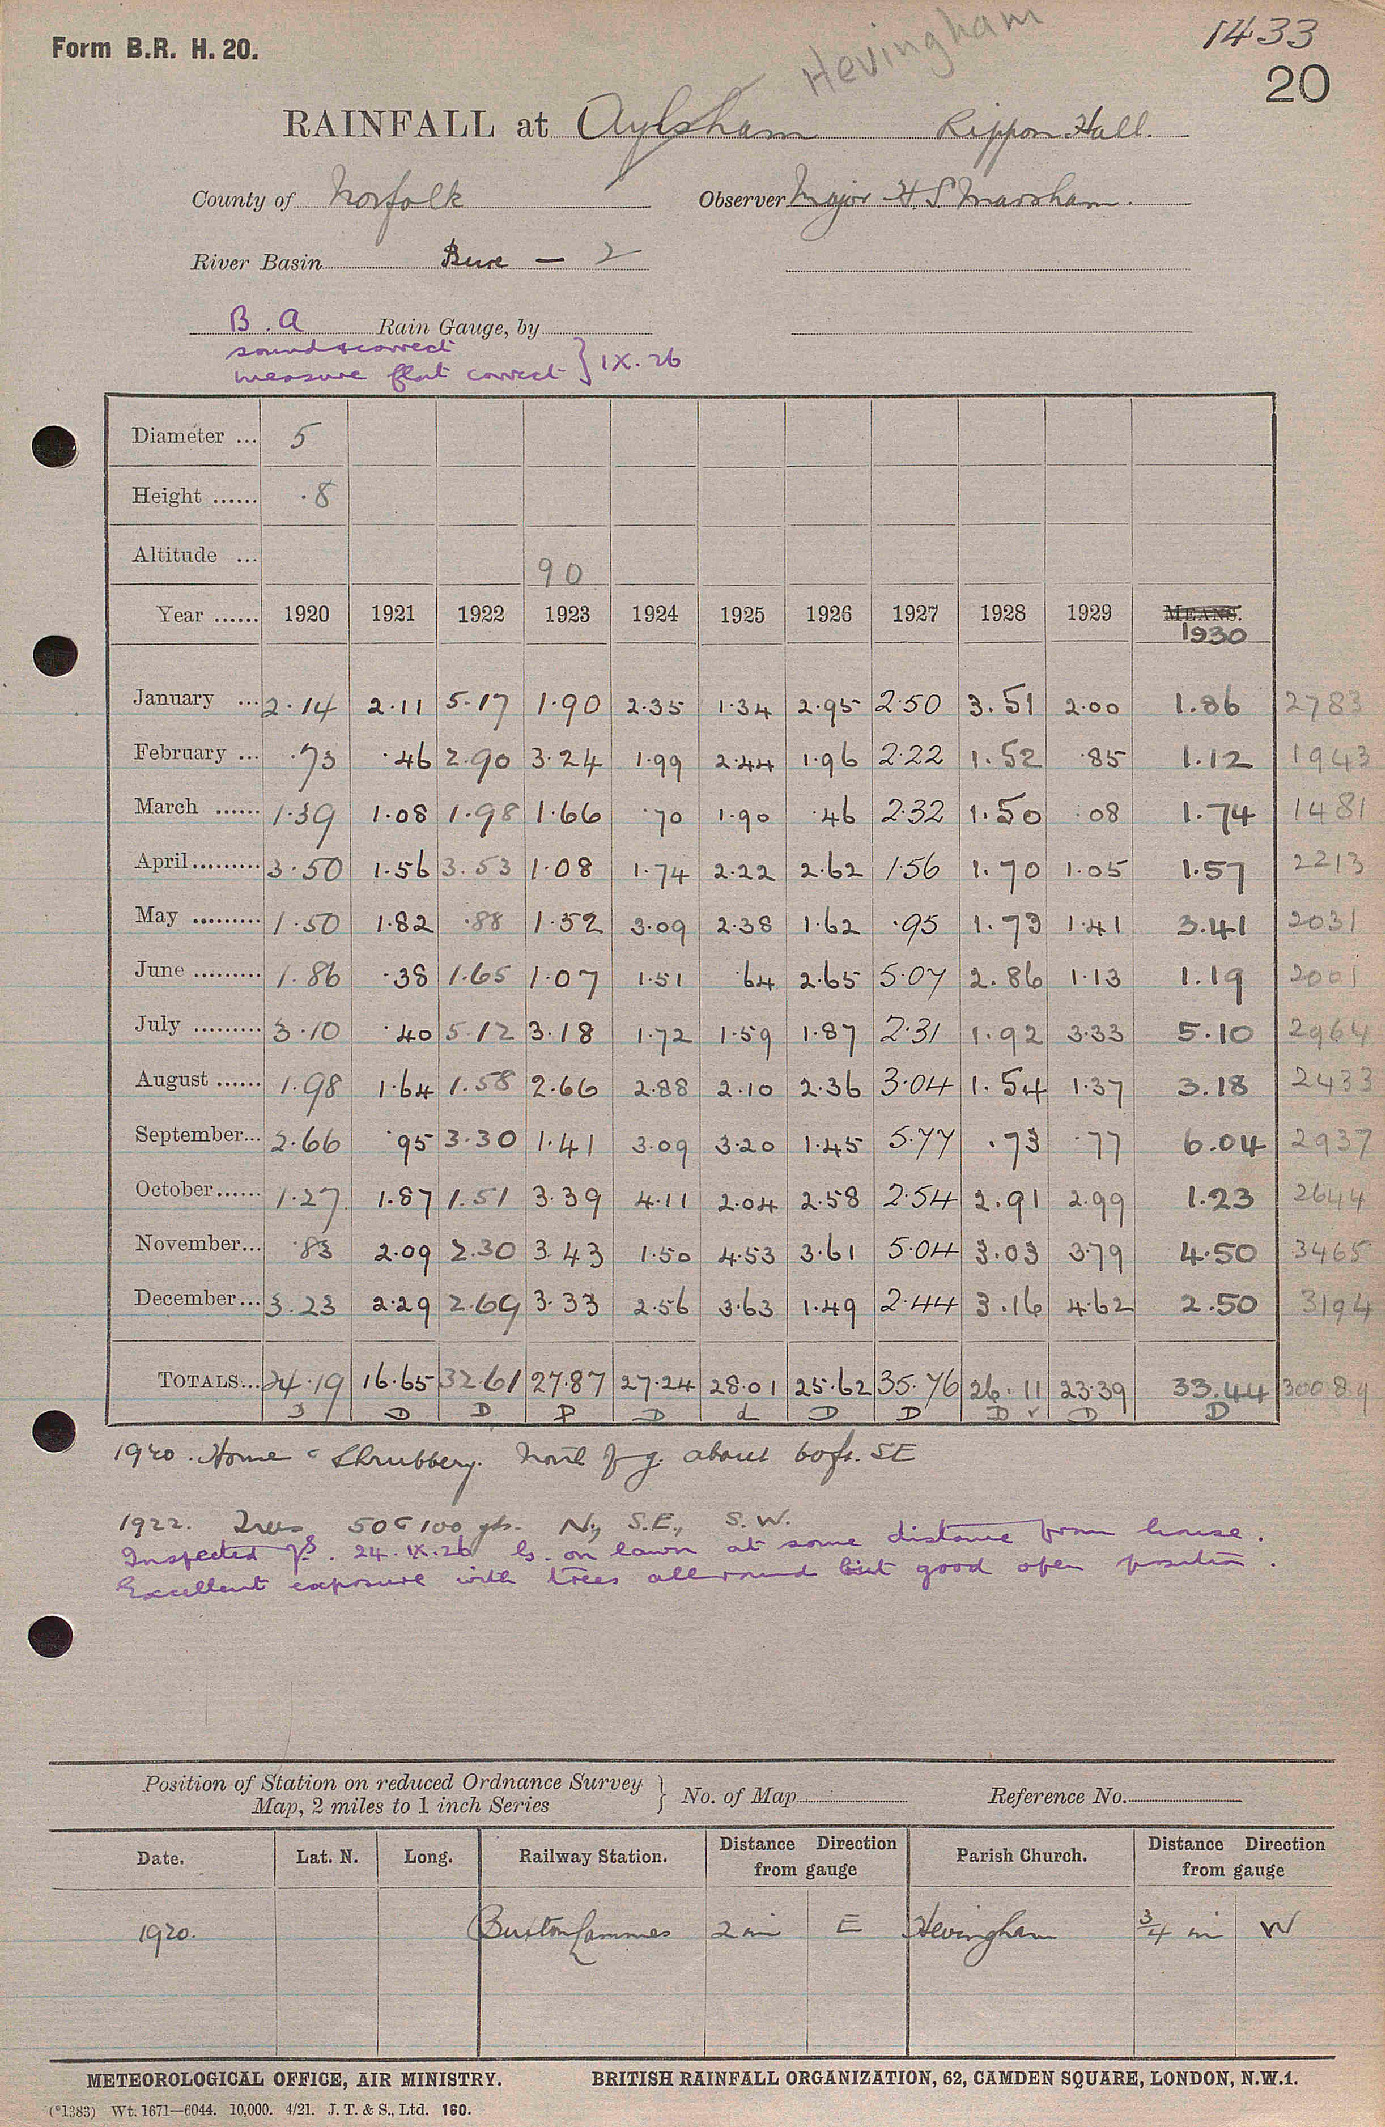 Hevingham
1433
Form B.R. H. 20.
20
RAINFALL at Aylsham Rippon Hall.
County of Norfolk Observer Major H S Marsham.
River Basin Bure — 2
B.A Rain Gauge, by
sound & correct
measure flat correct } IX.26
Diameter ... 5
Height ...... .8
Altitude ... 90
Year ...... 1920 1921 1922 1923 1924 1925 1926 1927 1928 1929 MEANS. 1930
January ... 2.14 2.11 5.17 1.90 2.35 1.34 2.95 2.50 3.51 2.00 1.86 2783
February ... .73 .46 2.90 3.24 1.99 2.44 1.96 2.22 1.52 .85 1.12 1943
March ...... 1.39 1.08 1.98 1.66 .70 1.90 .46 2.32 1.50 .08 1.74 1481
April ......... 3.50 1.56 3.53 1.08 1.74 2.22 2.62 1.56 1.70 1.05 1.57 2213
May ......... 1.50 1.82 .88 1.52 3.09 2.38 1.62 .95 1.73 1.41 3.41 2031
June ......... 1.86 .38 1.65 1.07 1.51 .64 2.65 5.07 2.86 1.13 1.19 2001
July ......... 3.10 .40 5.12 3.18 1.72 1.59 1.87 2.31 1.92 3.33 5.10 2964
August ...... 1.98 1.64 1.58 2.66 2.88 2.10 2.36 3.04 1.54 1.37 3.18 2433
September... 2.66 .95 3.30 1.41 3.09 3.20 1.45 5.77 .73 .77 6.04 2937
October...... 1.27 1.87 1.51 3.39 4.11 2.04 2.58 2.54 2.91 2.99 1.23 2644
November... .83 2.09 2.30 3.43 1.50 4.53 3.61 5.04 3.03 3.79 4.50 3465
December... 3.23 2.29 2.69 3.33 2.56 3.63 1.49 2.44 3.16 4.62 2.50 3194
TOTALS... 24.19 16.65 32.61 27.87 27.24 28.01 25.62 35.76 26.11 23.39 33.44 30089
D D D D d D D D D D
1920. Home Shrubbery. about 60ft. SE
1922. Trees 50 100 yds. N., S.E., S.W.
Inspected 24.IX.26 G. on lawn at some distance from house.
Excellent exposure with trees all round but good open position.
Position of Station on reduced Ordnance Survey
Map, 2 miles to 1 inch Series } No. of Map Reference No.
Date. Lat. N. Long. Railway Station. Distance Direction from gauge Parish Church. Distance Direction from gauge
1920. Buxton Lammas 2 mi E Hevingham 3/4 mi W
METEOROLOGICAL OFFICE, AIR MINISTRY. BRITISH RAINFALL ORGANIZATION, 62, CAMDEN SQUARE, LONDON, N.W.1.
(*1383) Wt. 1671—6044. 10,000. 4/21. J. T. & S., Ltd. 160.